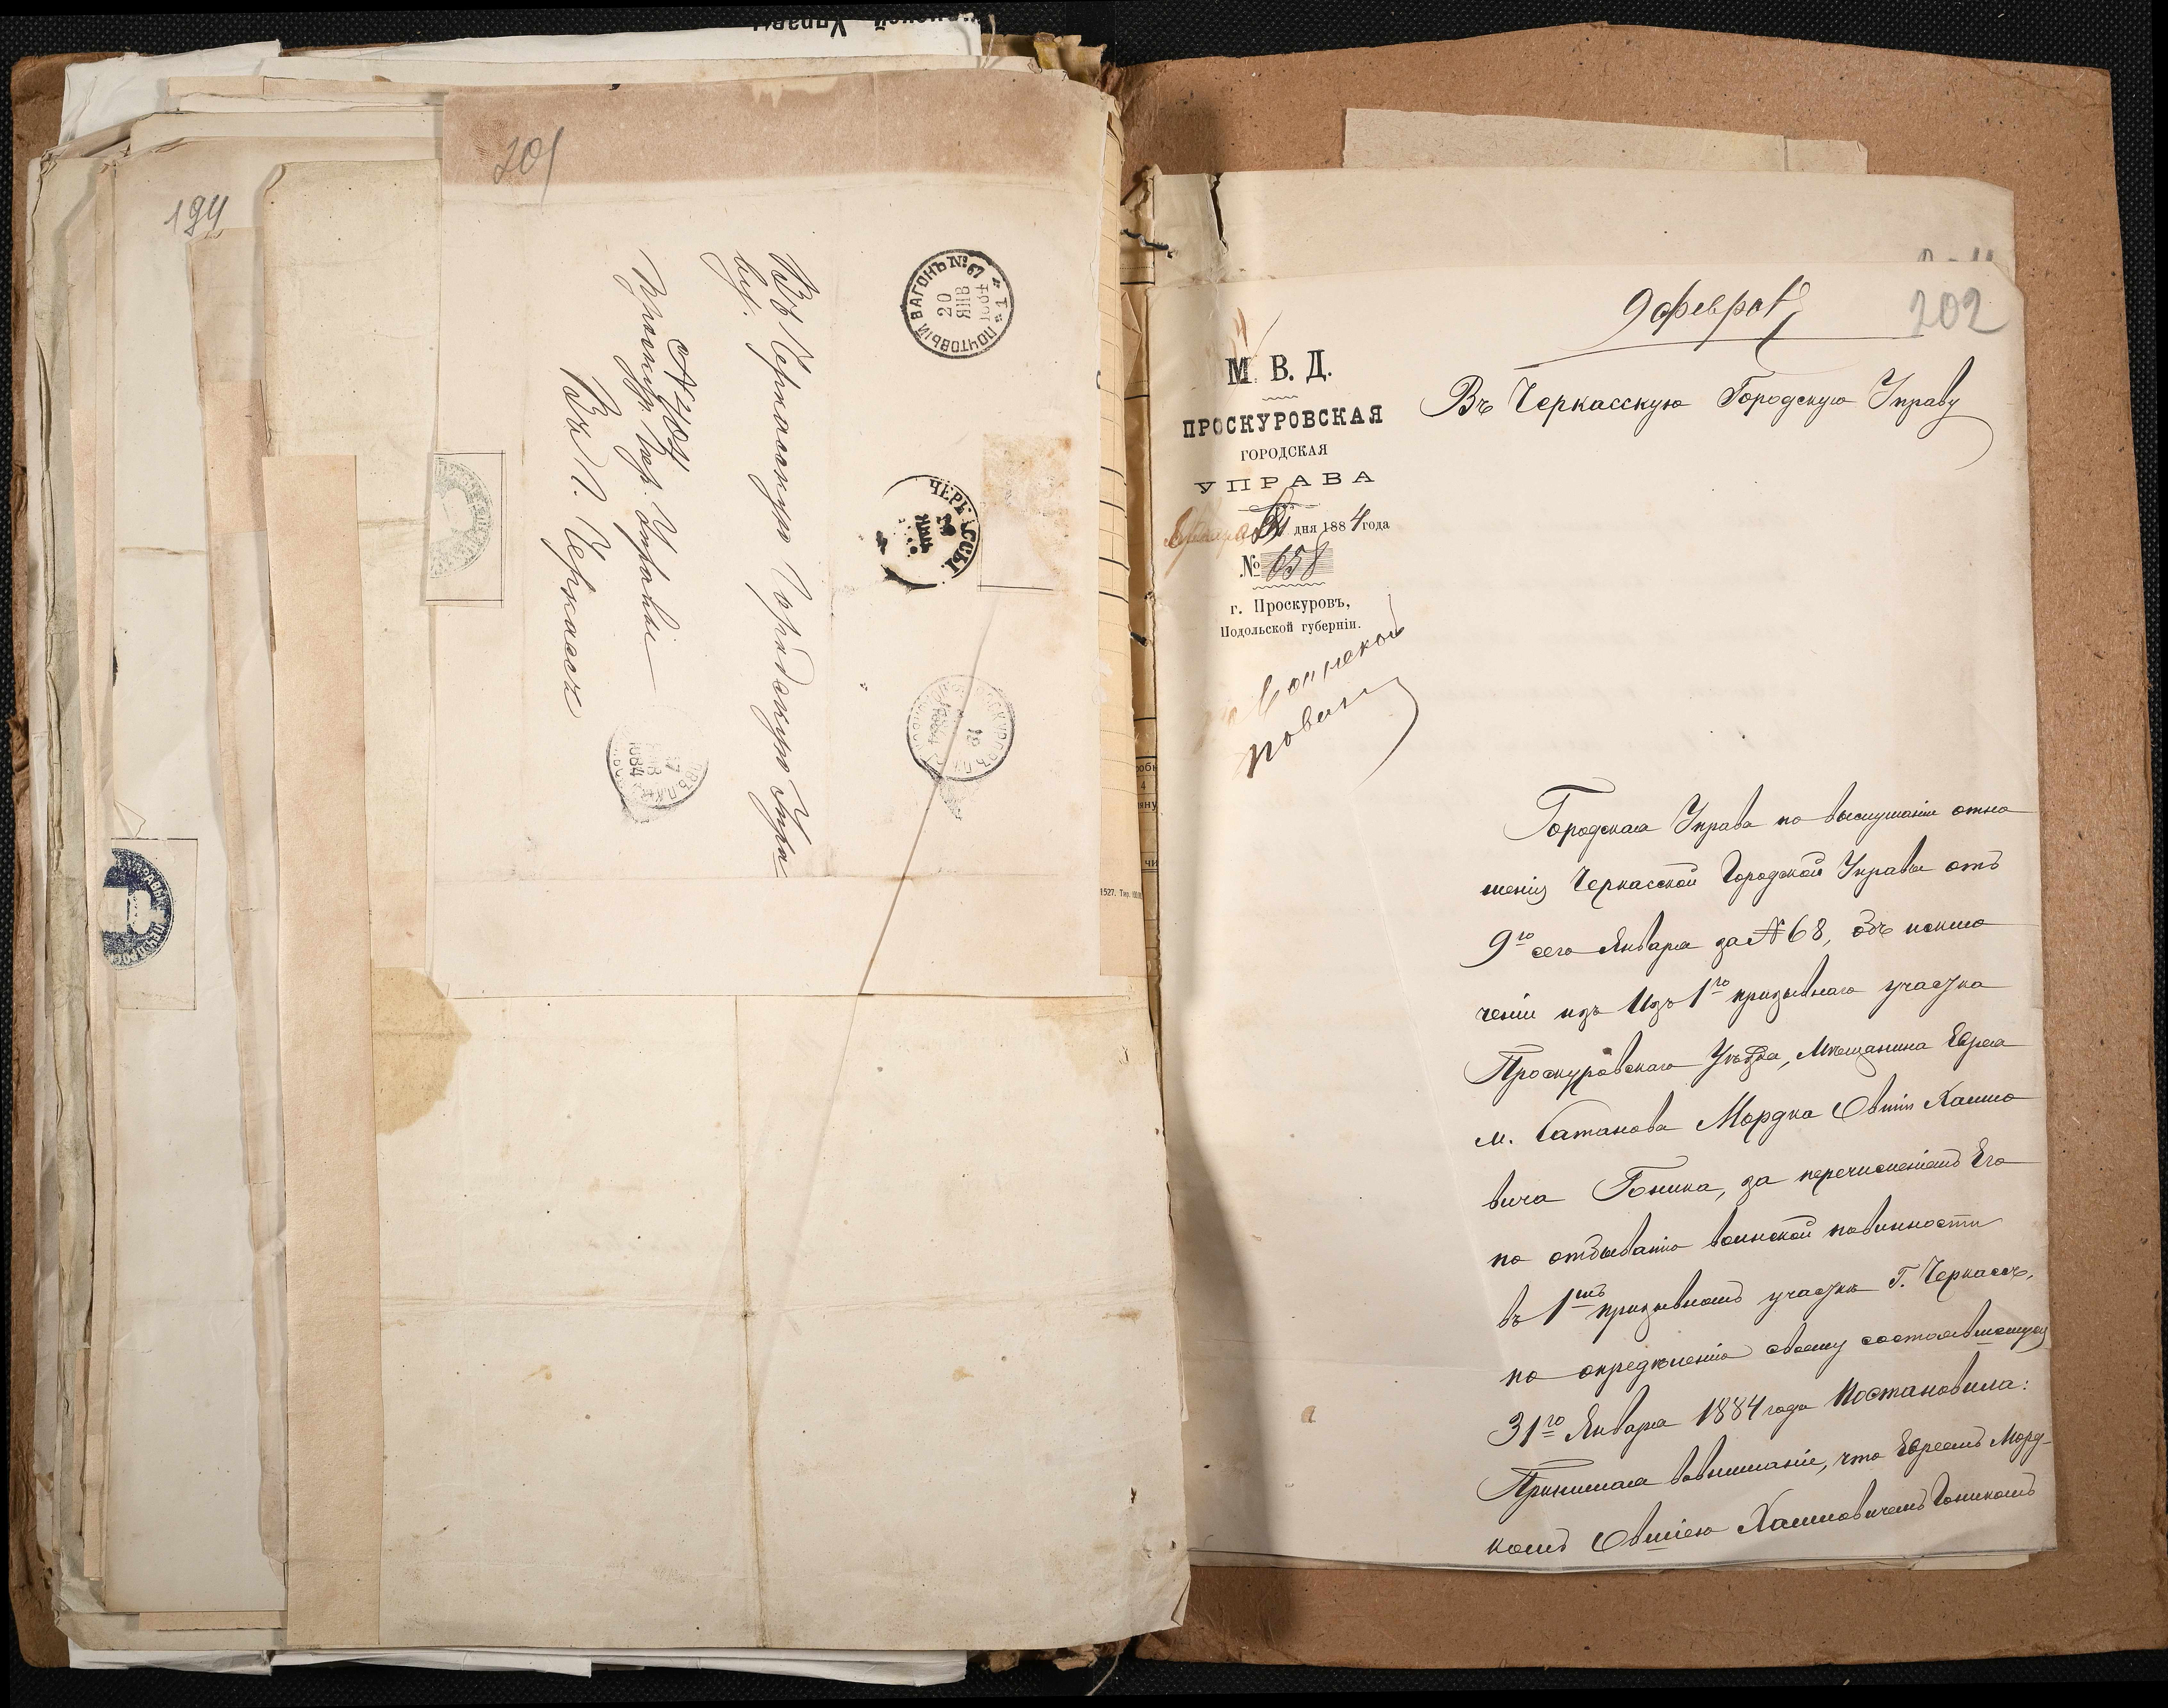 194
201
Въ Черкасскую Городскую Упра
ву.
№ 404.
Проскур. Гор. Управы
Въ Г. Черкассы
ПОЧТОВЫЙ ВАГОНЪ № 67
20
ЯНВ
ЧЕРКАССЫ
19
1884
202
9 Февраля
М. В. Д.
ПРОСКУРОВСКАЯ
ГОРОДСКАЯ
УПРАВА
31 дня 1884 года
№ 658
г. Проскуровъ,
Подольской губерніи.
Воинской
повин
Въ Черкасскую Городскую Управу
Городская Управа по выслушаніи отно
шенія Черкасской Городской Управы отъ
9го сего Января за № 68, объ исклю
ченіи изъ Изъ 1го призывнаго участка
Проскуровскаго Уѣзда, Мѣщанина Еврея
м. Сатанова Мордка Овшія Хаимо
вича Гоника, за перечисленіемъ Его
по отбыванію воинской повинности
въ 1мъ призывномъ участкѣ Г. Черкассъ,
по опредѣленію своему состоявшемуся
31го Января 1884 года Постановила:
Принимая вовниманіе, что Евреемъ Морд-
комъ Овшіею Хаимовичемъ Гоникомъ